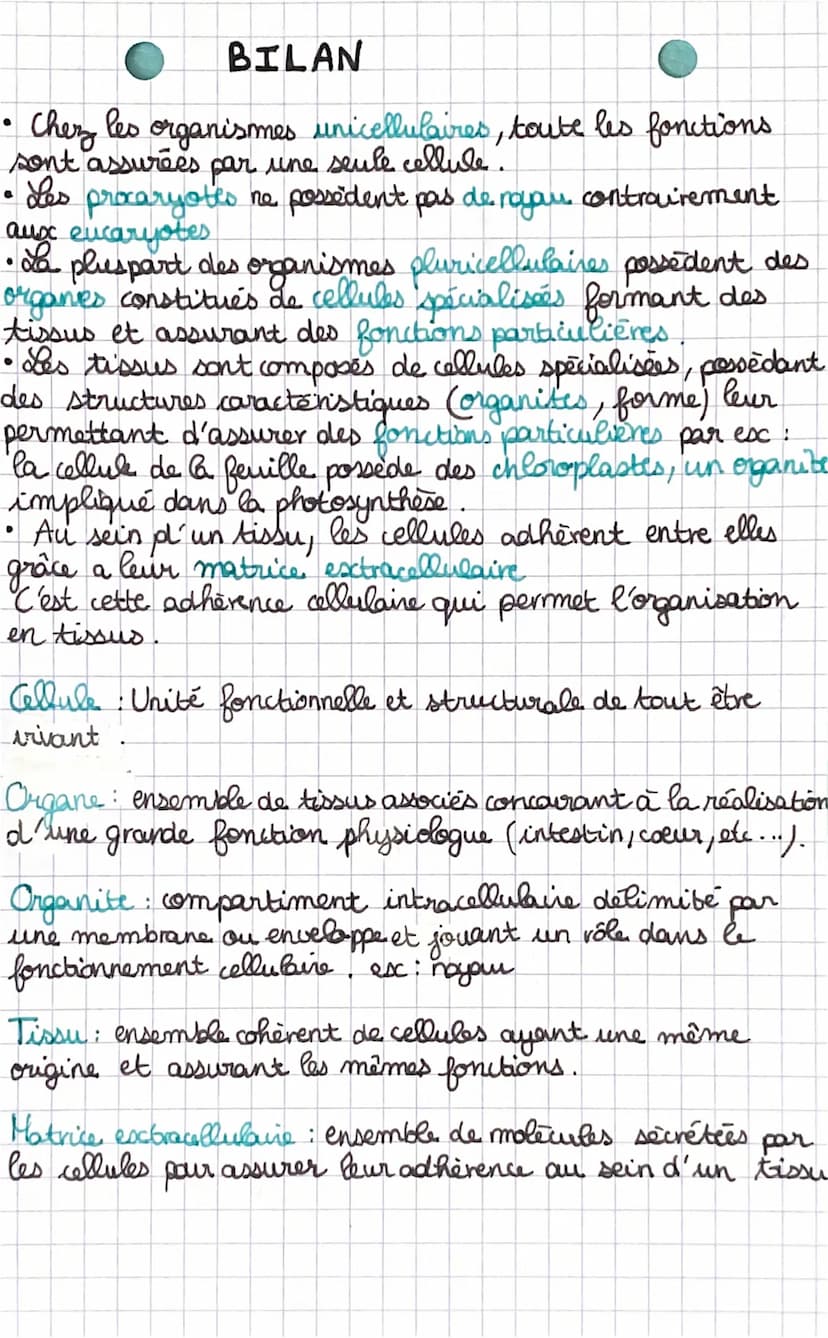 BILAN
• Chez les organismes unicellulaires, toute les fonctions
sont assurées par une seule cellule.
• Les procaryotes ne possèdent pas de noyau contrairement
aux eucaryotes
• La pluspart des organismes pluricellulaires possèdent des
organes constitués de cellules spécialisées formant des
tissus et assurant des fonctions particulières.
• Les tissus sont composés de cellules spécialisées, possèdant
des structures caractéristiques (organites, forme) leur
permettant d'assurer des fonctions particulières par ex :
la cellule de la feuille possède des chloroplastes, un organite
impliqué dans la photosynthèse.
• Au sein d'un tissu, les cellules adhèrent entre elles
grâce a leur matrice extracellulaire
C'est cette adhérence cellulaire qui permet l'organisation
en tissus.
Cellule : Unité fonctionnelle et structurale de tout être
vivant.
Organe : ensemble de tissus associés concourant à la réalisation
d'une grande fonction physiologue (intestin, coeur, etc...).
Organite : compartiment intracellulaire délimité par
une membrane ou enveloppe et jouant un rôle dans le
fonctionnement cellulaire. ex : noyau
Tissu : ensemble cohérent de cellules ayant une même
origine et assurant les mêmes fonctions.
Matrice extracellulaire : ensemble de molécules sécrétées par
les cellules pour assurer leur adhérence au sein d'un tissu